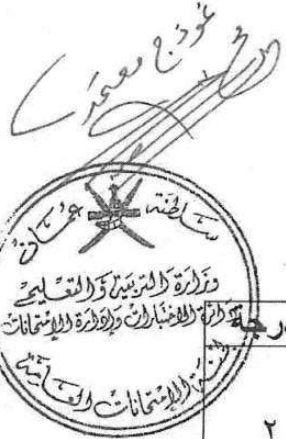 نموذج معتمد
سلطنة عمان
وزارة التربية والتعليم
دائرة الاختبارات وإدارة الامتحانات
الامتحانات العامة
٢